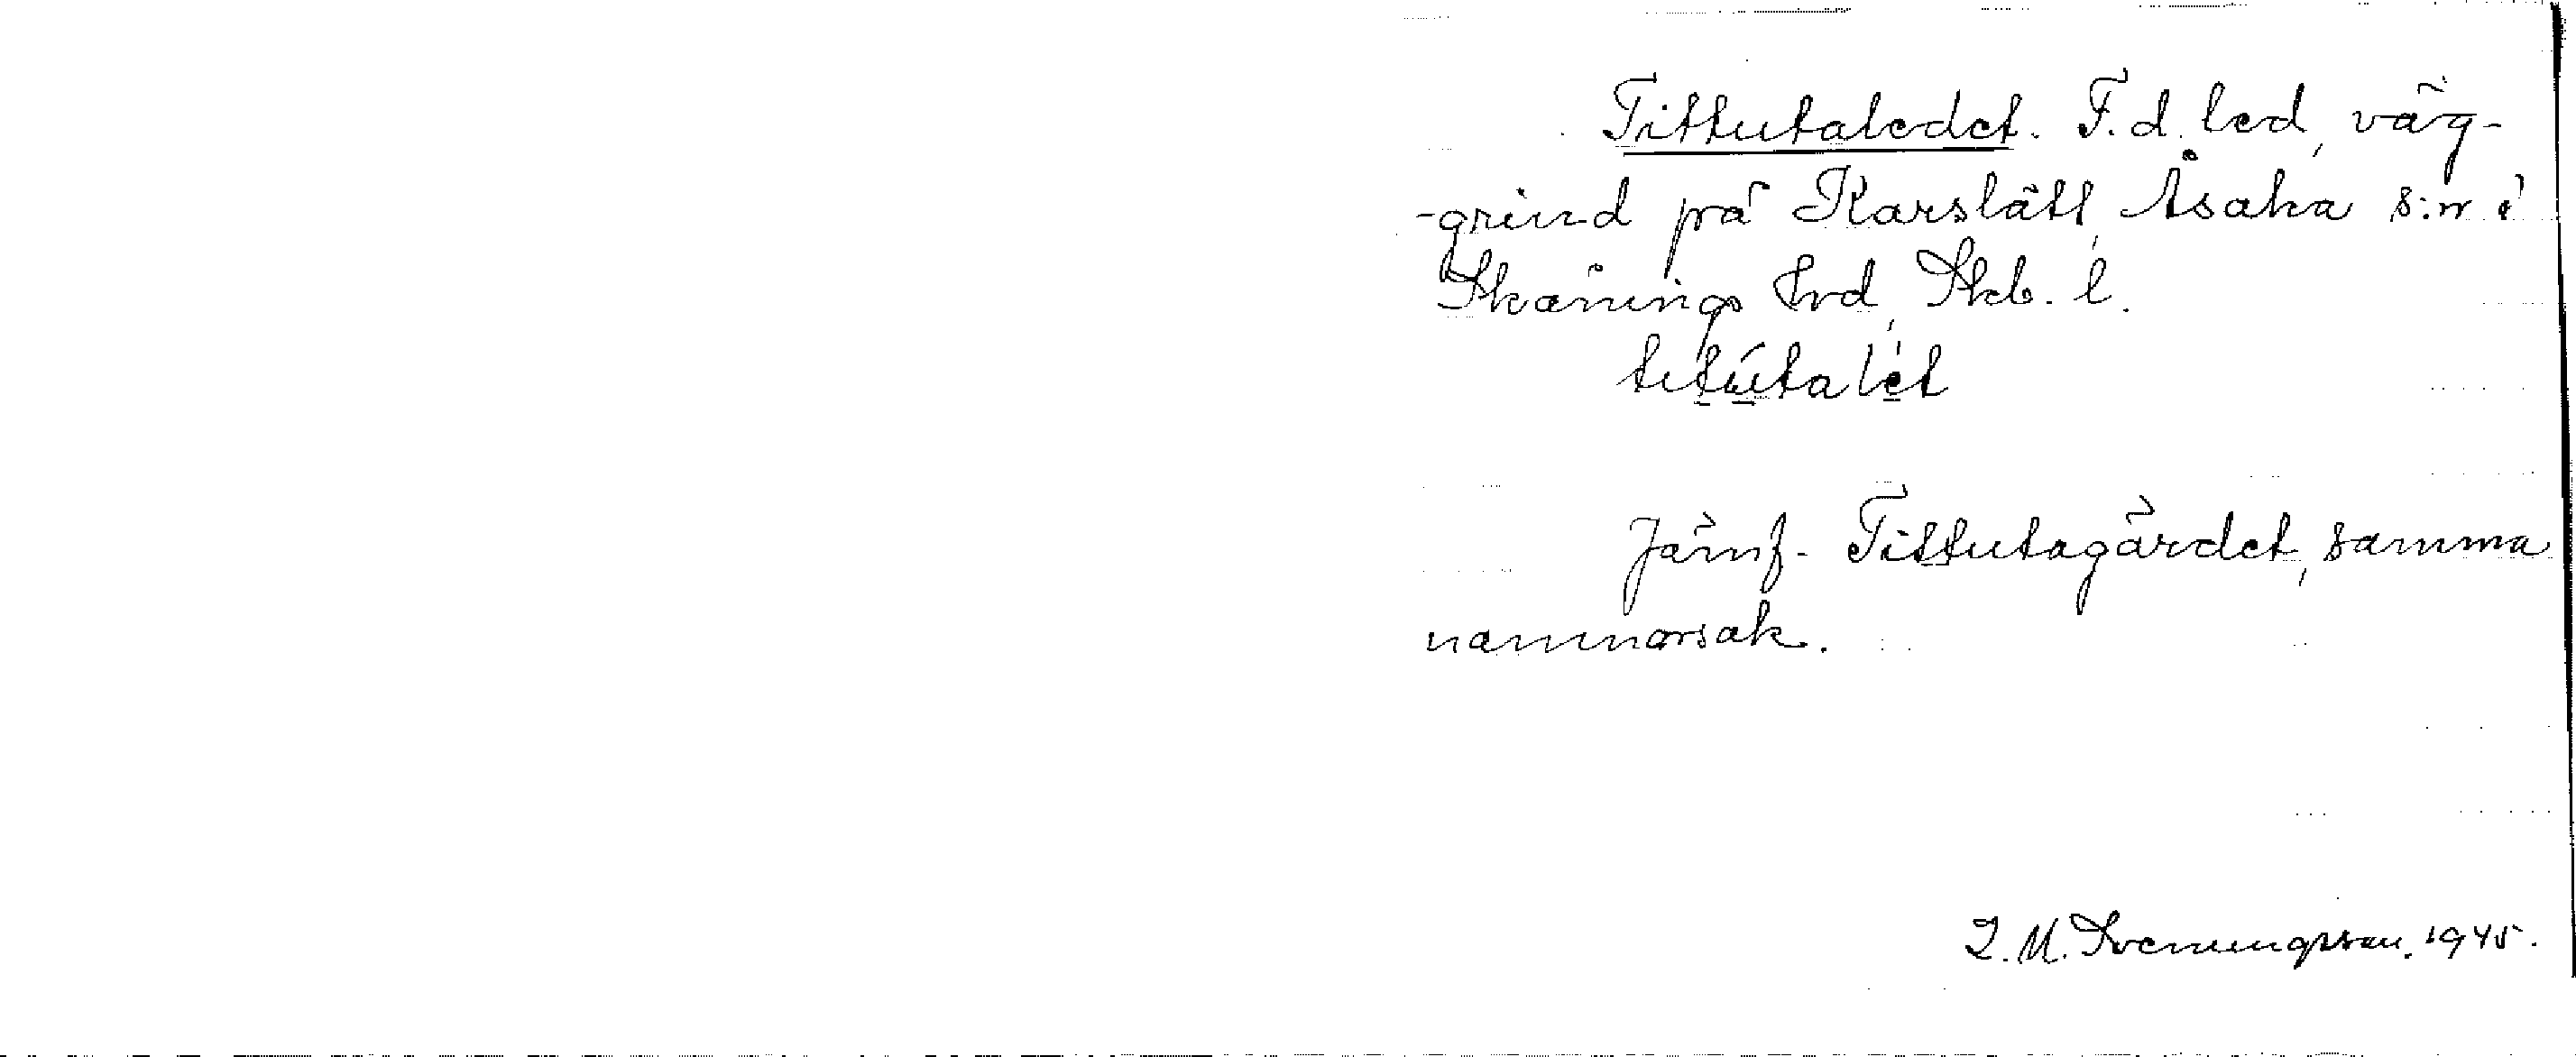 Tittutaledet. F.d. led, väg-
-grind på Karslätt, Åsaka s:n i
Skånings hrd, Skb. l.
titútalèt
Jämf. Tittutagärdet, samma
namnorsak.
Svenungsson. 1945.